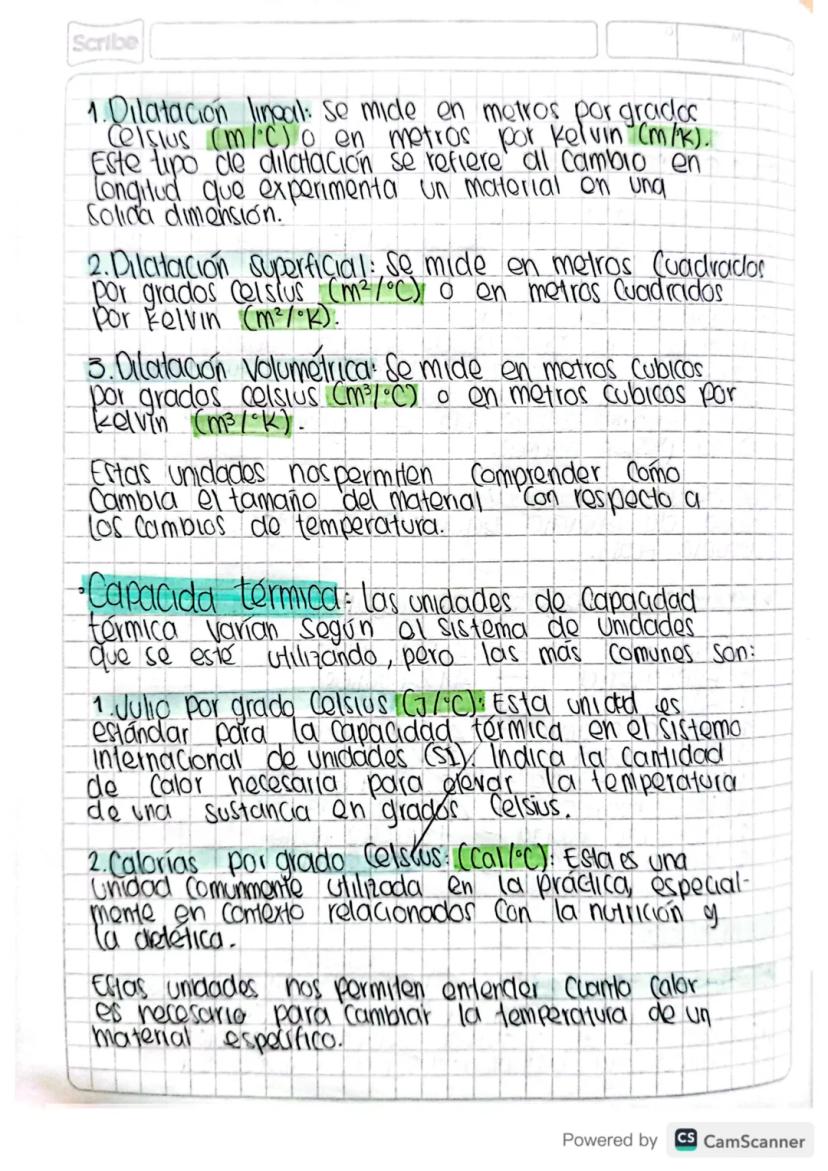 Scribe
1. Dilatación lineal: Se mide en metros por grados
Celsius (m/°C) o en metros por Kelvin (m/k).
Este tipo de dilatación se refiere al cambio en
longitud que experimenta un material en una
solida dimensión.
2. Dilatación superficial: Se mide en metros Cuadrados
por grados Celsius (m²/°C) o en metros Cuadrados
por Kelvin (m²/°K).
3. Dilatación Volumétrica: Se mide en metros Cubicos
por grados celsius (m³/°C) o en metros cubicos por
kelvin (m³/°K).
Estas unidades nos permiten Comprender Como
Cambia el tamaño del material Con respecto a
los cambios de temperatura.
Capacida térmica: las unidades de Capacidad
térmica varían según el sistema de unidades
que se esté utilizando, pero las más comunes son:
1. Julio por grado Celsius (J/°C): Esta unidad es
estándar para la capacidad térmica en el sistema
internacional de unidades (SI). Indica la Cantidad
de Calor necesaria para elevar la temperatura
de una sustancia en grados Celsius.
2. Calorías por grado Celsius: (Cal/°C): Esta es una
unidad comunmente utilizada en la práctica, especial-
mente en contexto relacionados con la nutrición y
la dietética.
Estas unidades nos permiten entender cuanto Calor
es necesario para cambiar la temperatura de un
material específico.
Powered by CS CamScanner